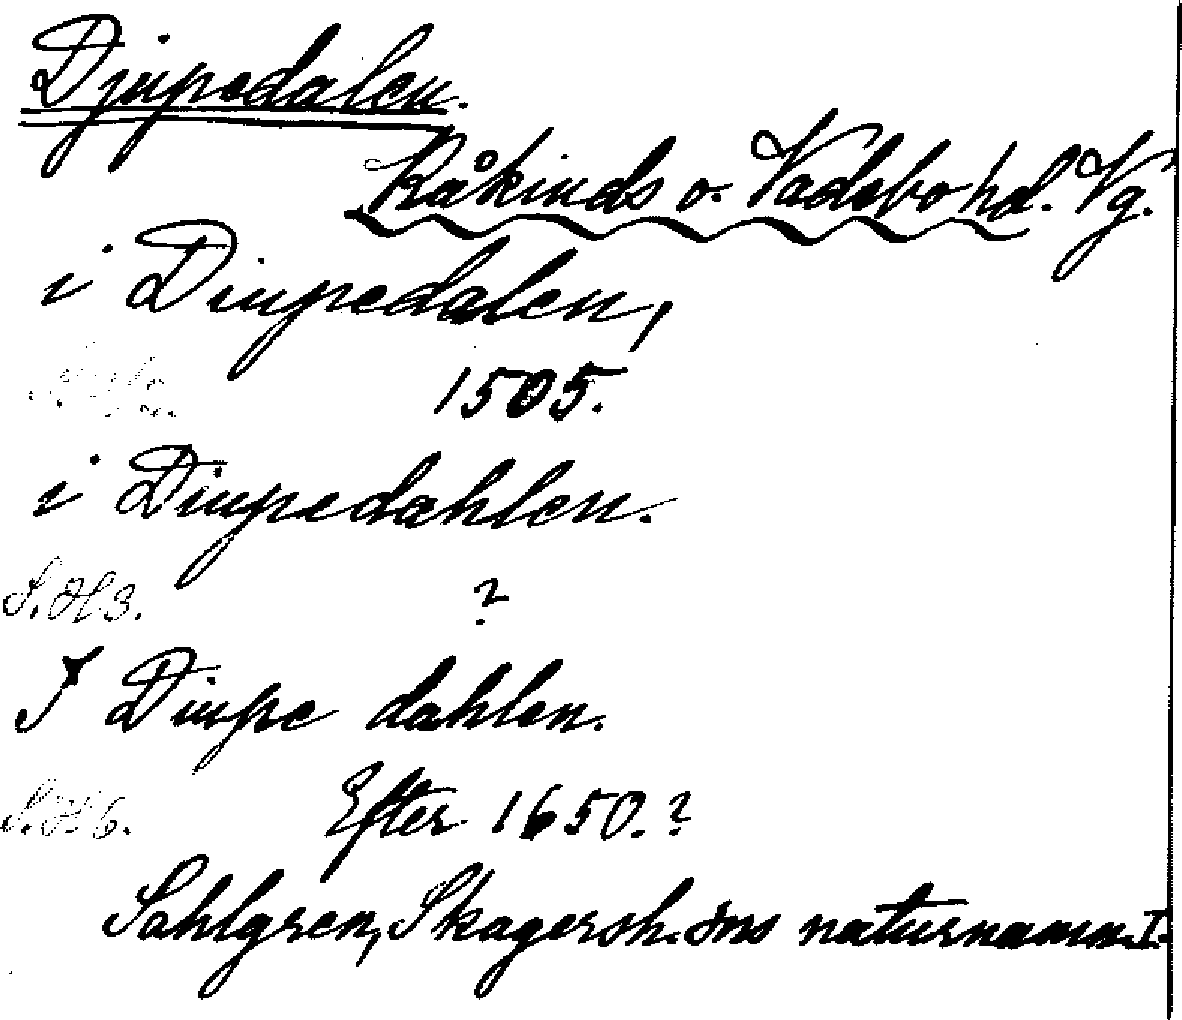 Djupedalen.
Kåkinds o. Vadsbo hd. Vg.
i Diupedalen,
1505.
i Diupedahlen.
S.H3. ?
I Diupe dahlen.
S.H6. Efter 1650.?
Sahlgren, Skagersh. sns naturnamn. I.